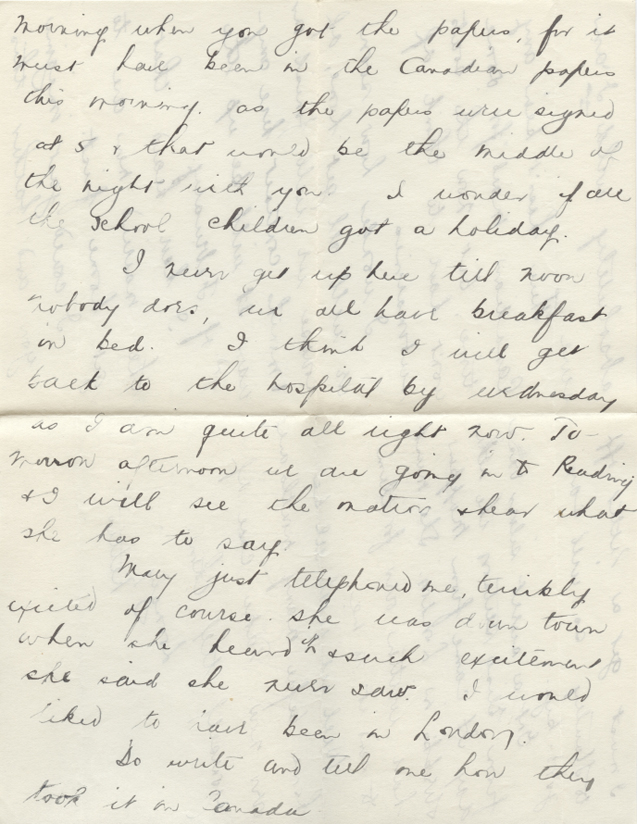 morning when you got the papers, for it
must have been in the Canadian papers
this morning. as the papers were signed
at 5 & that would be the middle of
the night with you. I wonder if all
the school children got a holiday.
I never get up here till noon
nobody does, we all have breakfast
in bed. I think I will get
back to the hospital by wednesday
as I am quite all right now. To-
morrow afternoon we are going in to Reading
& I will see the matron & hear what
she has to say.
Mary just telephoned me, terribly
excited of course. she was down town
when she heard it & such excitement
she said she never saw. I would
liked to have been in London.
Do write and tell me how they
took it in Canada